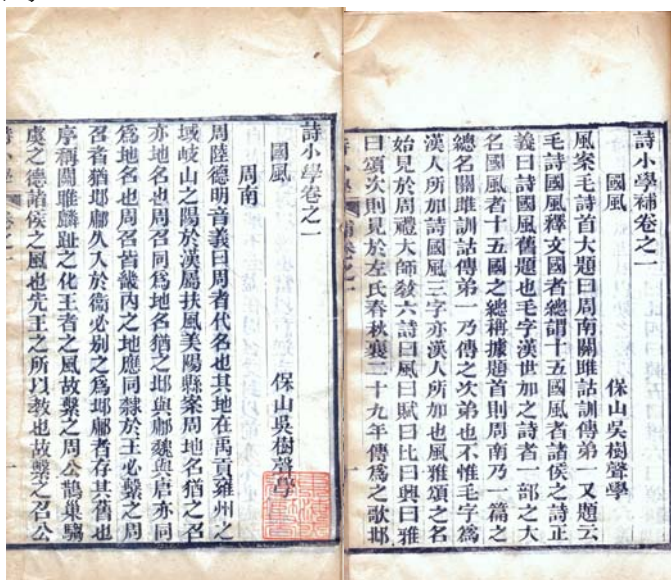 詩小學補卷之一
國風　保山吳樹聲學
風案毛詩首大題曰周南關雎詁訓傳弟一又題云
毛詩國風釋文國者總謂十五國風者諸侯之詩正
義曰詩國風舊題也毛字漢世加之詩者一部之大
名國風者十五國之總稱據題首則周南乃一篇之
總名關雎訓詁傳弟一乃傳之次弟也不惟毛字爲
漢人所加詩國風三字亦漢人所加也風雅頌之名
始見於周禮大師敎六詩曰風曰賦曰比曰興曰雅
曰頌次則見於左氏春秋襄二十九年傳爲之歌邶
詩小學卷之一
國風　保山吳樹聲學
周南
周陸德明音義曰周者代名也其地在禹貢雍州之
域岐山之陽於漢屬扶風美陽縣案周地名猶之召
亦地名也周召同爲地名猶之邶與鄘魏與唐亦同
爲地名也周召皆畿內之地應同隸於王必繫之周
召者猶邶鄘久入於衞必別之爲邶鄘者存其舊也
序稱關雎麟趾之化王者之風故繫之周公鵲巢騶
虞之德諸侯之風也先王之所以敎也故繫之召公